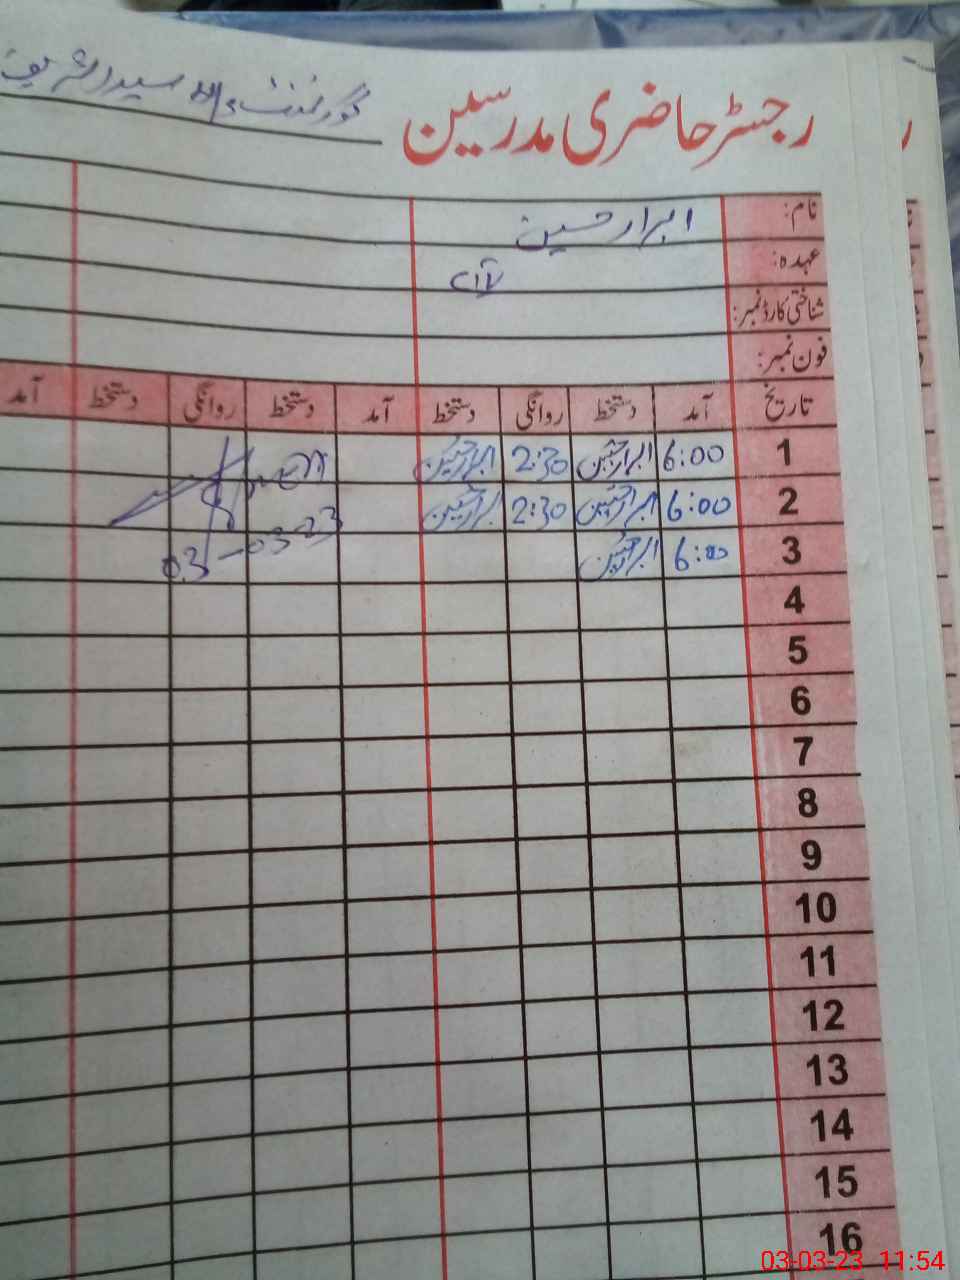 رجسٹر حاضری مدرسین گورنمنٹ سیدا شریف
نام: ابرار حسین
عہدہ:
شناختی کارڈ نمبر:
فون نمبر:
تاریخ آمد دستخط روانگی دستخط آمد دستخط روانگی دستخط آمد
1 6:00 ابرار حسین 2:30 ابرار حسین
2 6:00 ابرار حسین 2:30 ابرار حسین
3 6:00 ابرار حسین 03-03-23
4
5
6
7
8
9
10
11
12
13
14
15
16
03-03-23 11:54